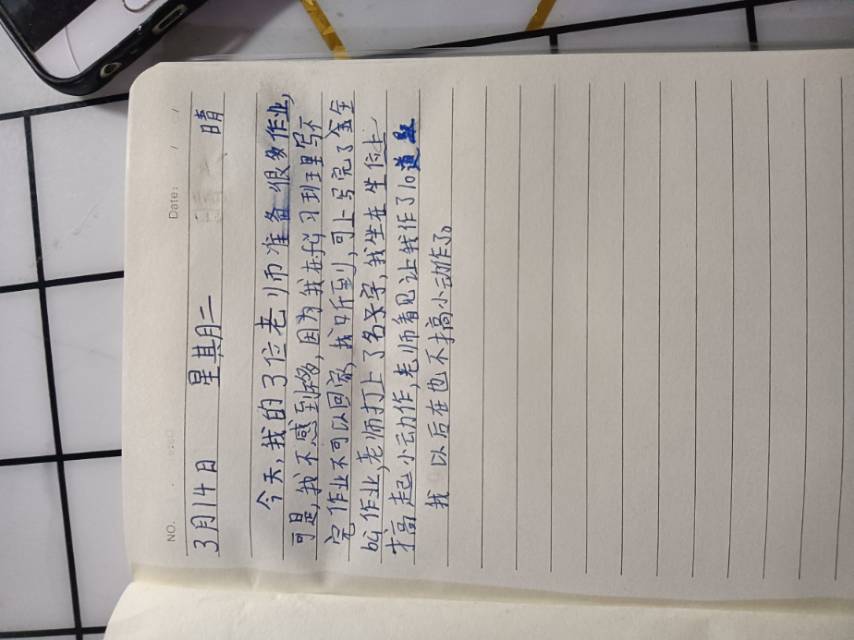 NO.
Date: / /
3月14日 星其月二 晴
今天,我的3位老师准备很多作业,
可是,我不感到多,因为我在学习班里写不
完作业不可以回家,我听到,可上写完了全
的作业,老师打上了名字,我坐在坐位上
搞起小动作,老师看见让我作了10道题
我以后在也不搞小动作了。